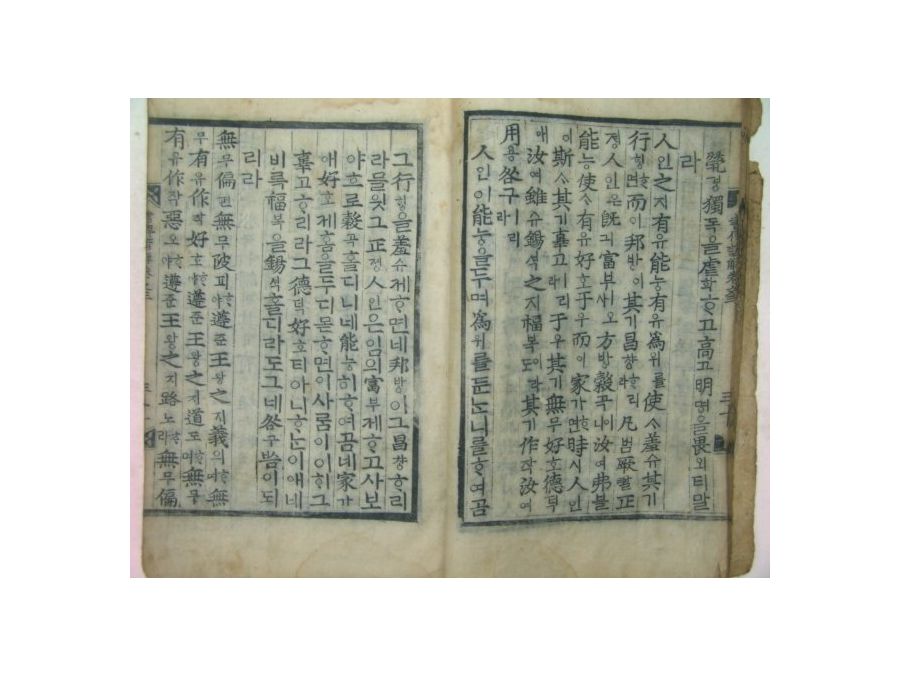 煢경獨독을虐학ᄒᆞ고高고明명을畏외티말
라
人인之지有유能능有유爲위를使ᄉᆞ羞슈其기
行ᄒᆡᆼᄒᆞ면而이邦방이其기昌챵ᄒᆞ리라凡범厥궐正
졍人인은旣긔富부ᄉᆞ오方방穀곡이니汝여弗블
能능使ᄉᆞ有유好호于우而이家가ᄒᆞ면時시人인
이斯ᄉᆞ其기辜고ㅣ리라于우其기無무好호德덕
애汝여雖슈錫셕之지福복ᄒᆞ야도其기作작汝여
用용咎구ㅣ리라
人인이能능을두며爲위를둔ᄂᆞ니를ᄒᆞ여곰
그行ᄒᆡᆼ을羞슈제ᄒᆞ면네邦방이그昌챵ᄒᆞ리
라믈읫그正졍人인은임의富부제ᄒᆞ고사보
야ᄒᆞ로穀곡홀디니네能능히ᄒᆞ여곰네家가
애好호제홈을두디몯ᄒᆞ면이사ᄅᆞᆷ이이ᄒᆞ그
辜고ᄒᆞ리라그德덕好호티아니ᄒᆞᄂᆞᆫ이애네
비록福복을錫셕홀디라도그네咎구ᄡᅮᆷ이되
리라
無무偏편無무陂피ᄒᆞ야遵쥰王왕之지義의ᄒᆞ며無
무有유作작好호ᄒᆞ야遵쥰王왕之지道도ᄒᆞ며無무
有유作작惡오ᄒᆞ야遵쥰王왕之지路로ᄒᆞ라無무偏